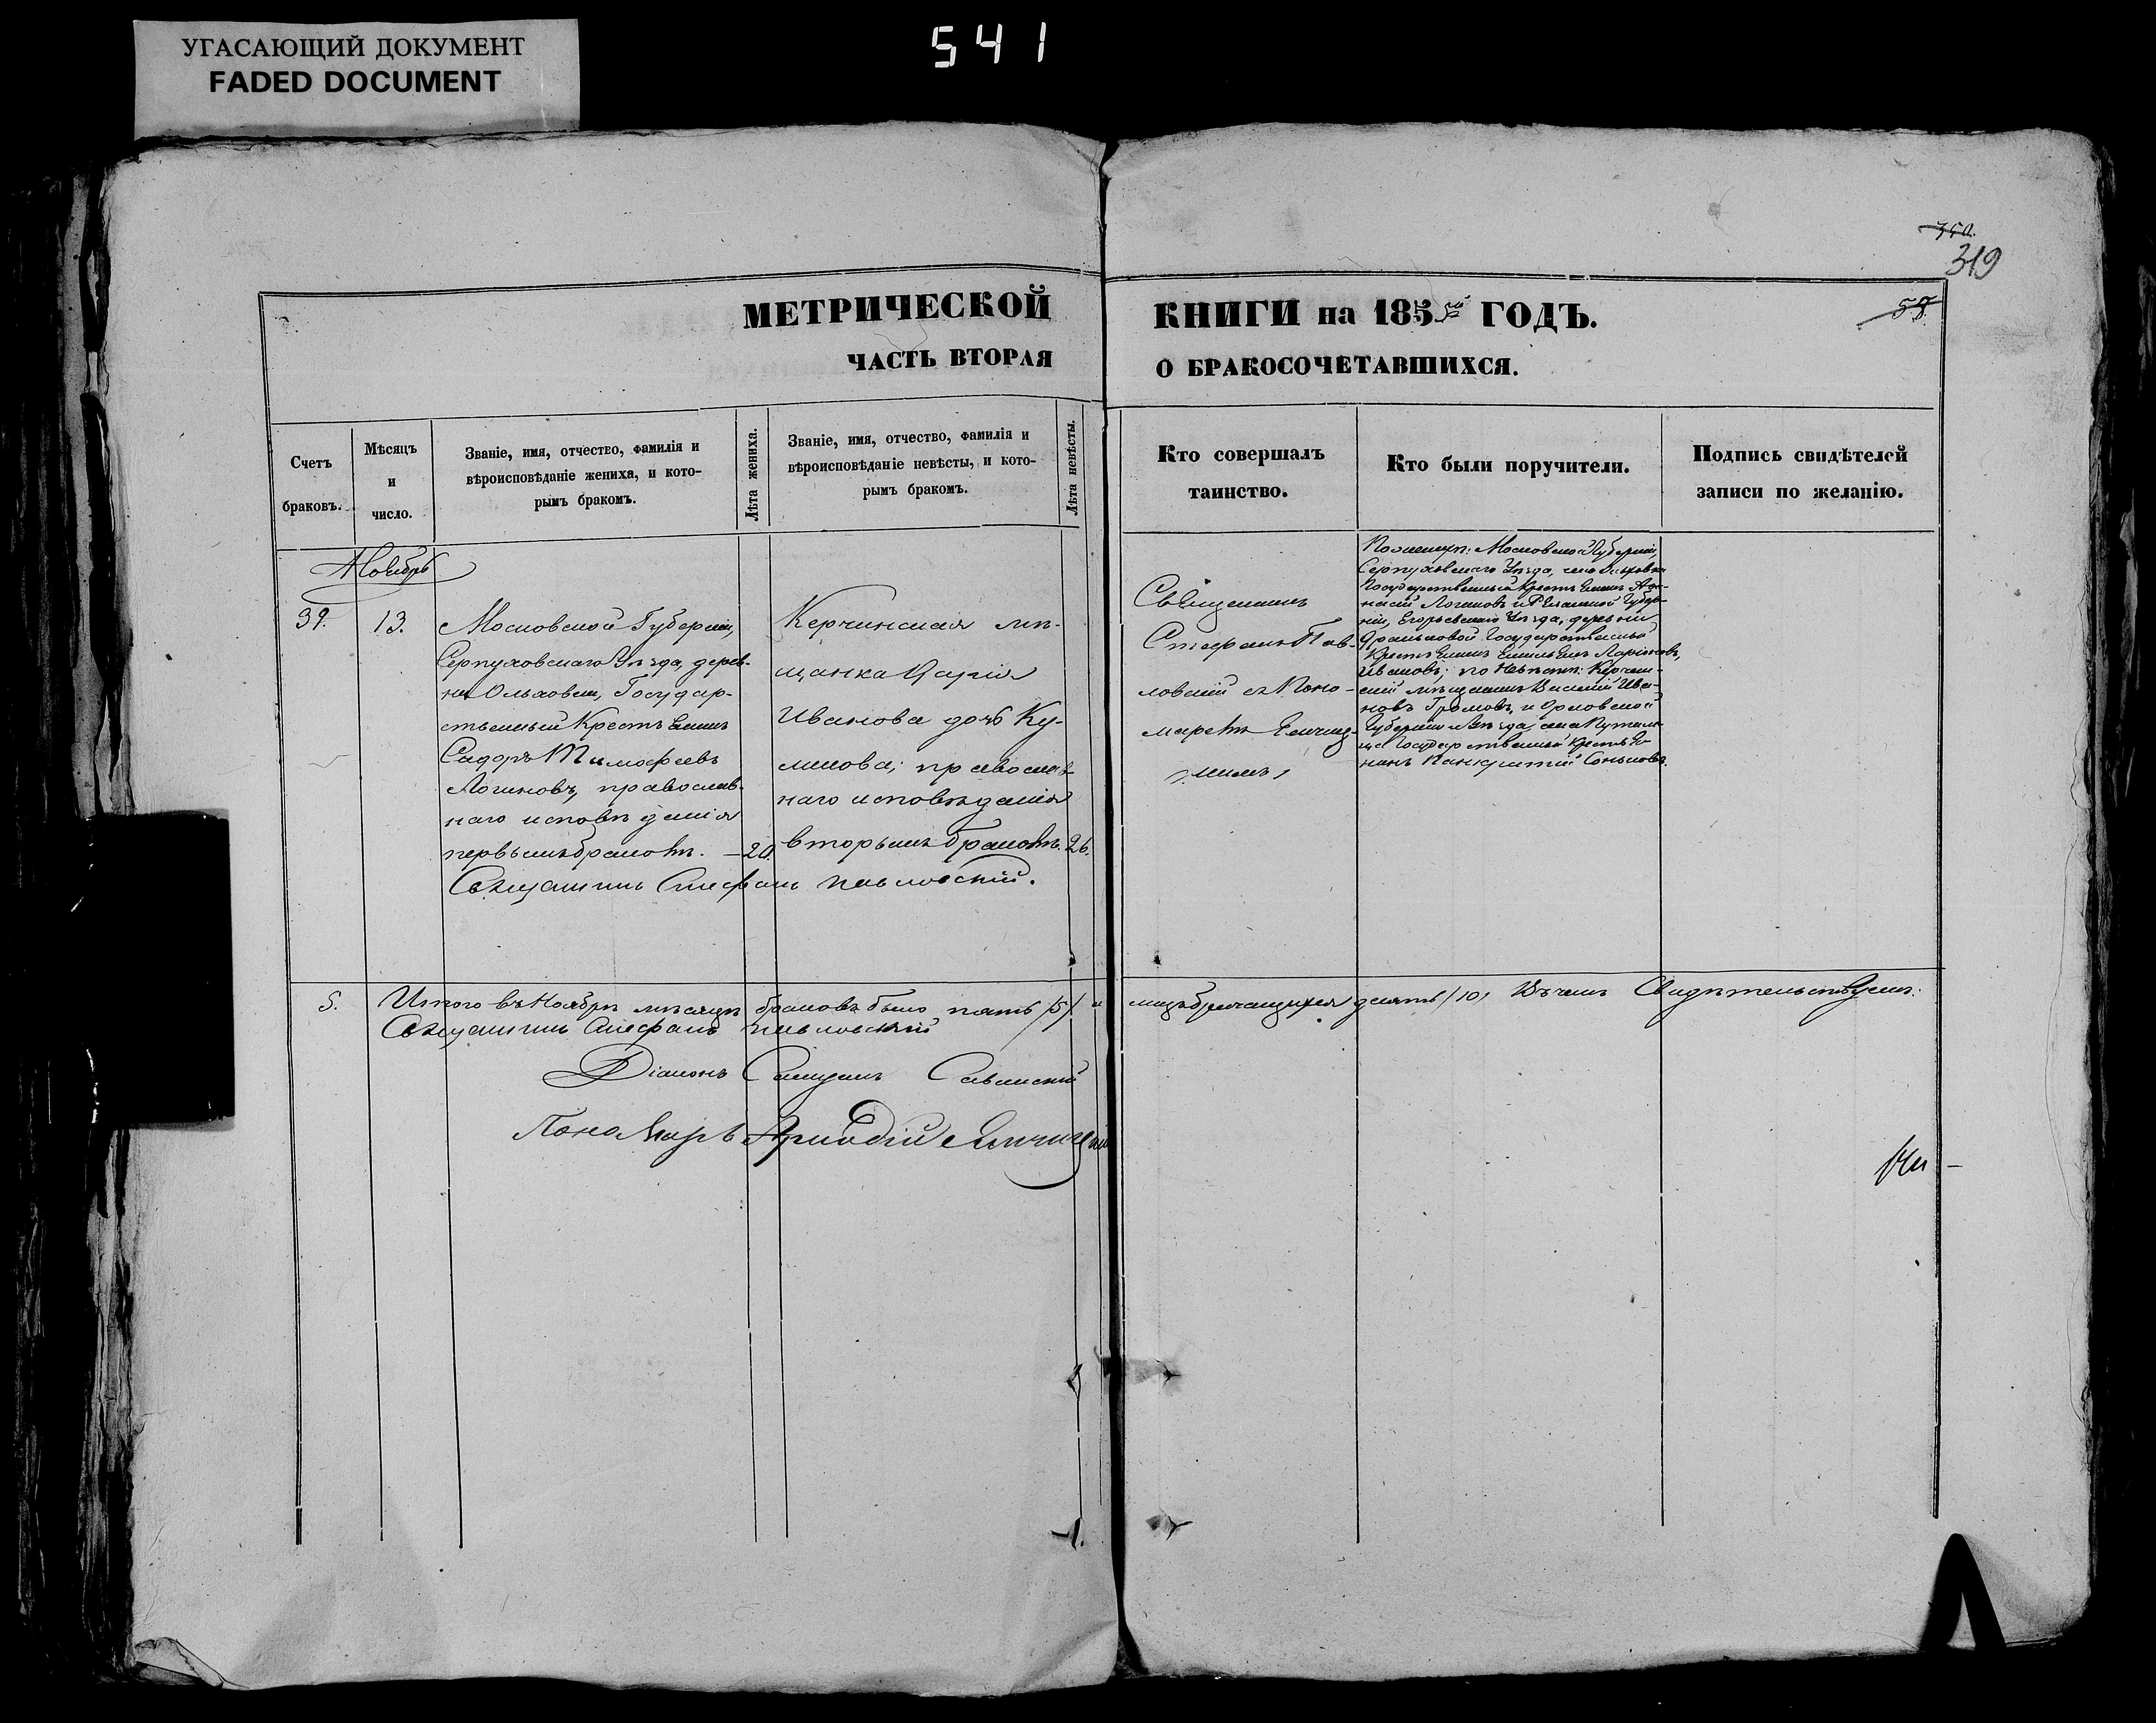 УГАСАЮЩИЙ ДОКУМЕНТ
FADED DOCUMENT
541
350.
319
58.
МЕТРИЧЕСКОЙ
ЧАСТЬ ВТОРАЯ
КНИГИ на 1855й ГОДЪ.
О БРАКОСОЧЕТАВШИХСЯ.
Счетъ
браковъ.
Мѣсяцъ
и
число.
Званіе, имя, отчество, фамилія и
вѣроисповѣданіе жениха, и кото-
рымъ бракомъ.
Лѣта жениха.
Званіе, имя, отчество, фамилія и
вѣроисповѣданіе невѣсты, и кото-
рымъ бракомъ.
Лѣта невѣсты.
Кто совершалъ
таинство.
Кто были поручители.
Подпись свидѣтелей
записи по желанію.
Ноябрь
39.
13.
Московской Губерніи,
Серпуховскаго Уѣзда, дерев-
ни Ольховки, Государ-
ственный Крестьянинъ
Сидоръ Тимофеевъ
Логиновъ, православ-
наго исповѣданія
первымъ бракомъ. — 20.
Керчинская мѣ-
щанка Марія
Иванова дочь Ку-
ликова; православ-
наго исповѣданія
вторымъ бракомъ. 26.
Священникъ Стефанъ Павловскій.
Священникъ
Стефанъ Пав-
ловскій съ Поно-
маремъ
По женихѣ: Московской Губерніи,
Серпуховскаго Уѣзда, села
Государственный Крестьянинъ Афа-
насій Логиновъ и Рязанской Губер-
ніи, Егорьевскаго Уѣзда, деревни
Государственный
Крестьянинъ Емельянъ Ларіоновъ
Ивановъ; по Невѣстѣ: Керчин-
скій мѣщанинъ Василій Ива-
новъ Громовъ, и Орловской
Губерніи и Уѣзда, села
Государственный Крестья-
нинъ Панкратій
5.
Итого въ Ноябрѣ мѣсяцѣ браковъ было пять /5/. и
лицъ брачащихся десять /10/ Въ чемъ Свидѣтельствуемъ:
Священникъ Стефанъ Павловскій
Діаконъ
Пономарь